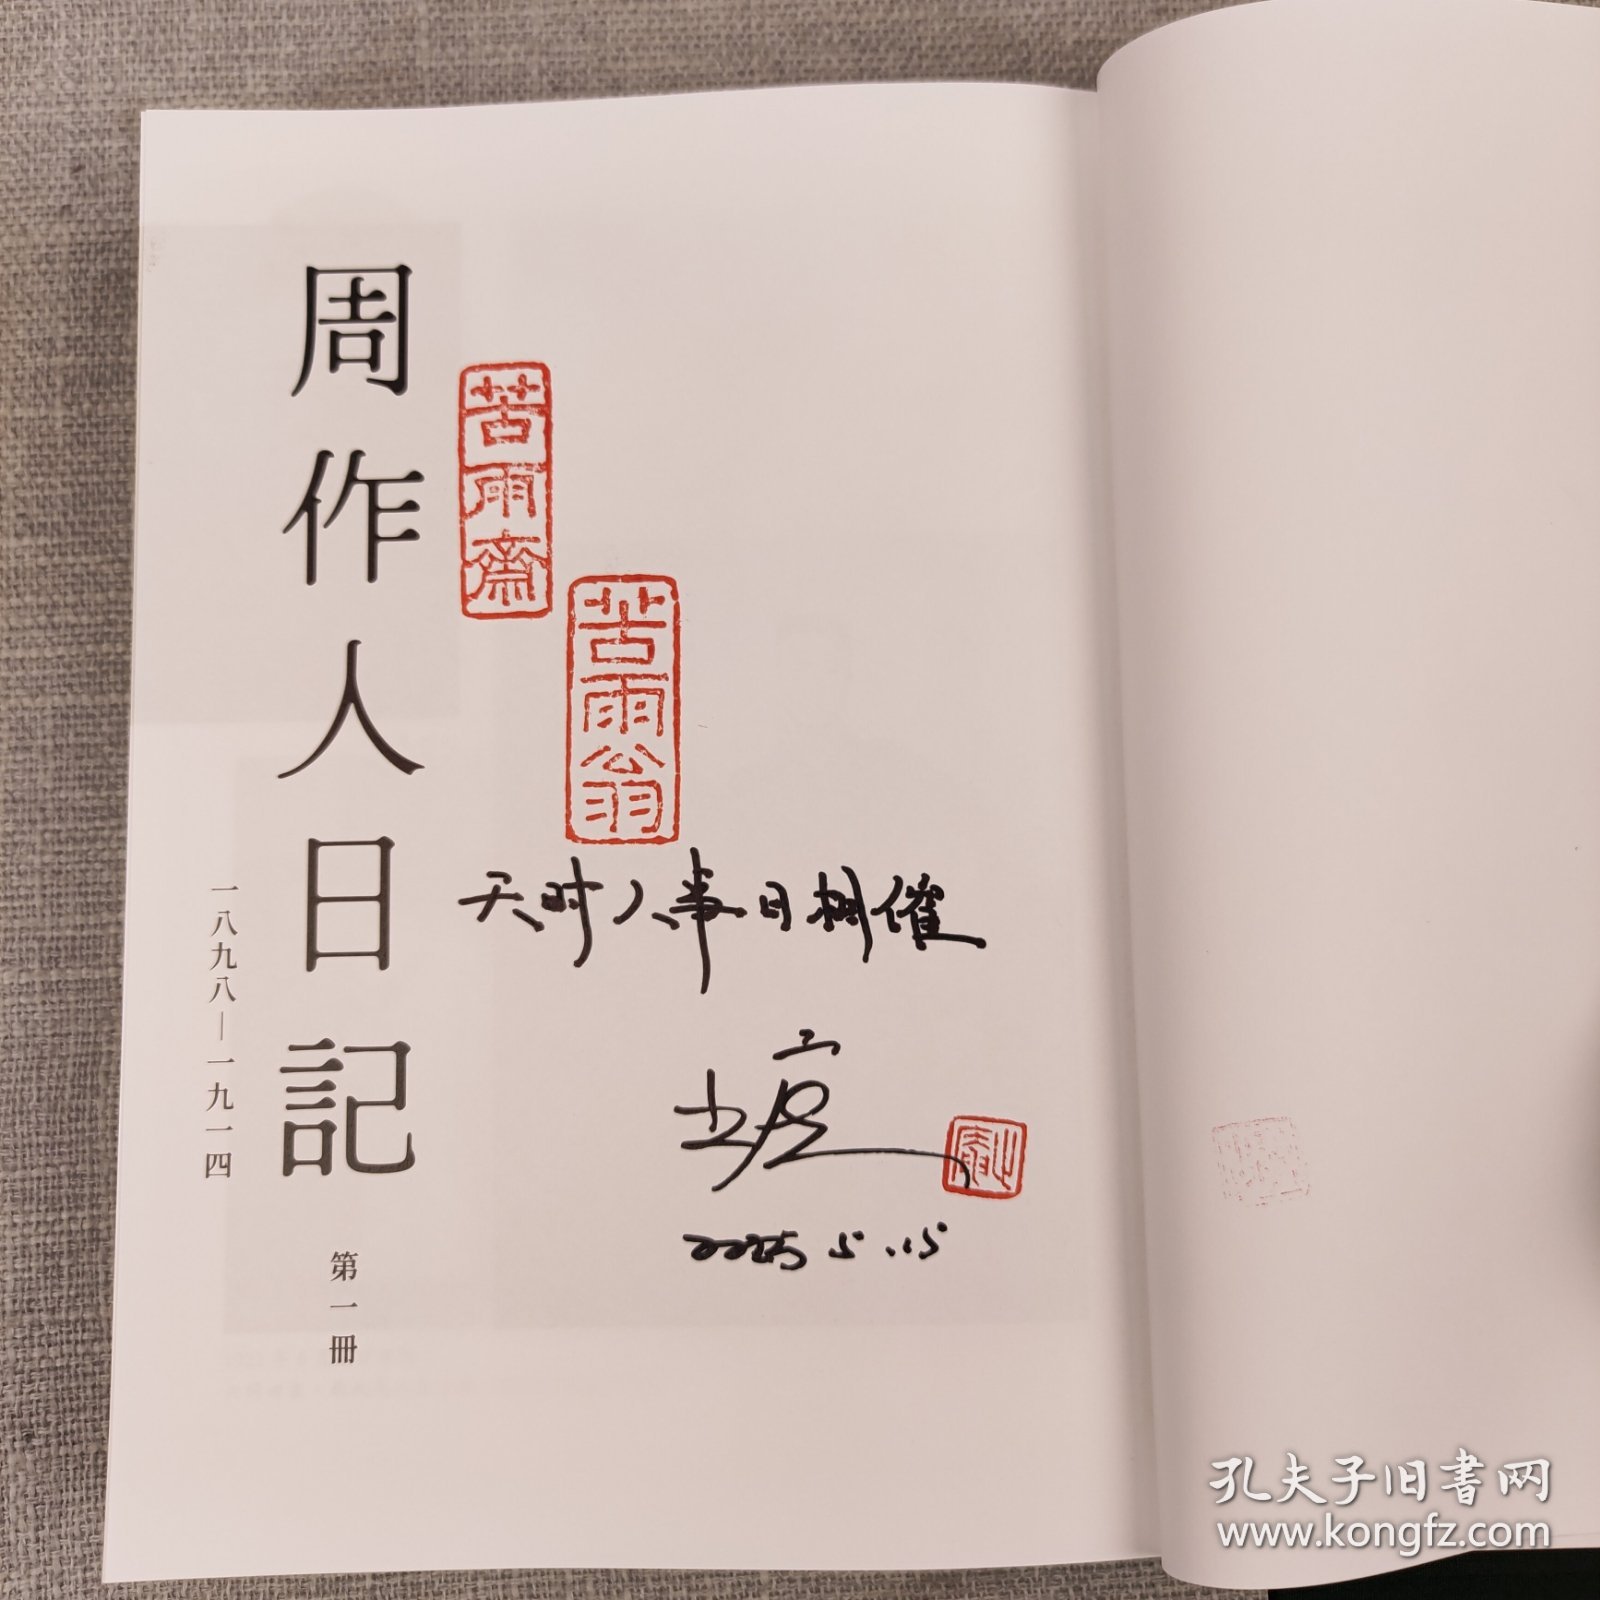 周作人日記
一八九八—一九一四
第一冊
苦雨齋
苦雨翁
天时人事日相催
2025.5.15
孔夫子旧书网
www.kongfz.com